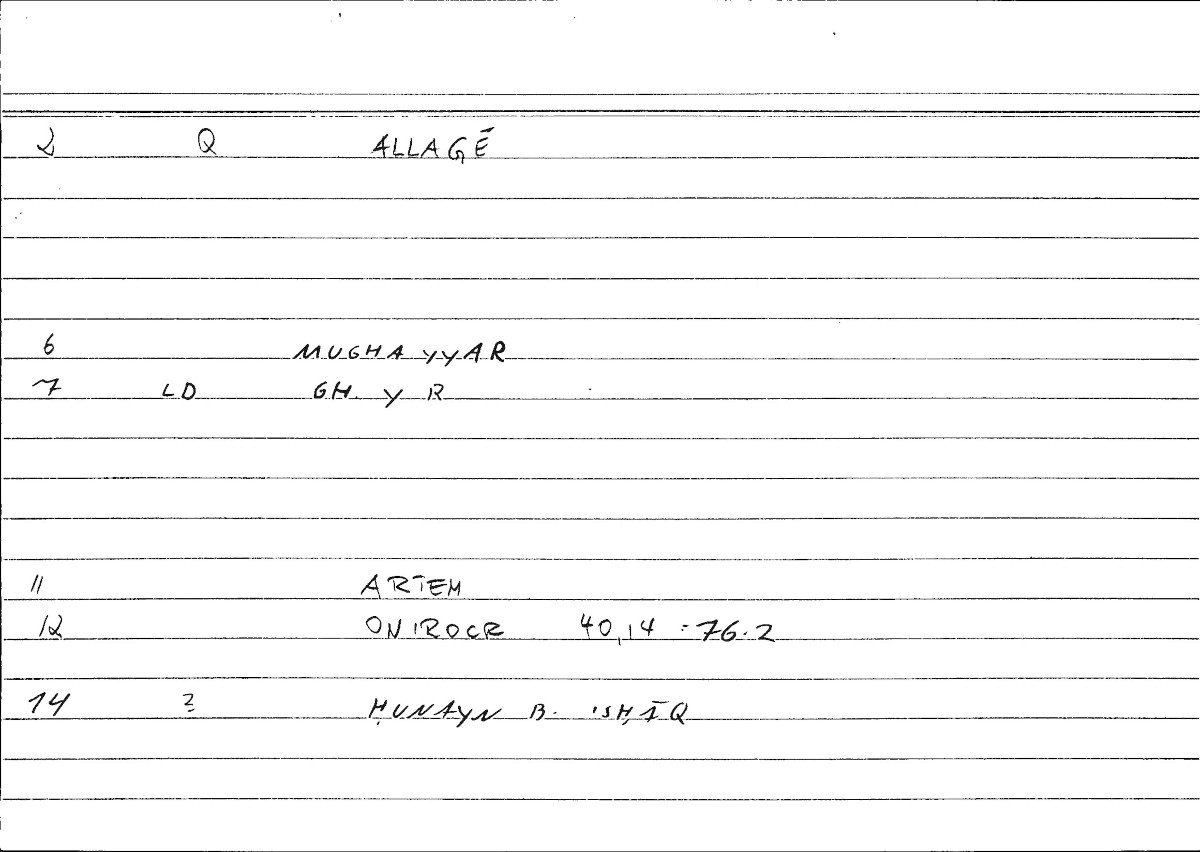 2 Q ALLAGḖ
6 MUGHAYYAR
7 LD GH Y R
11 ARTEM
12 ONIROCR 40,14 = 76.2
14 2 ḤUNAYN B. ISḤĀQ